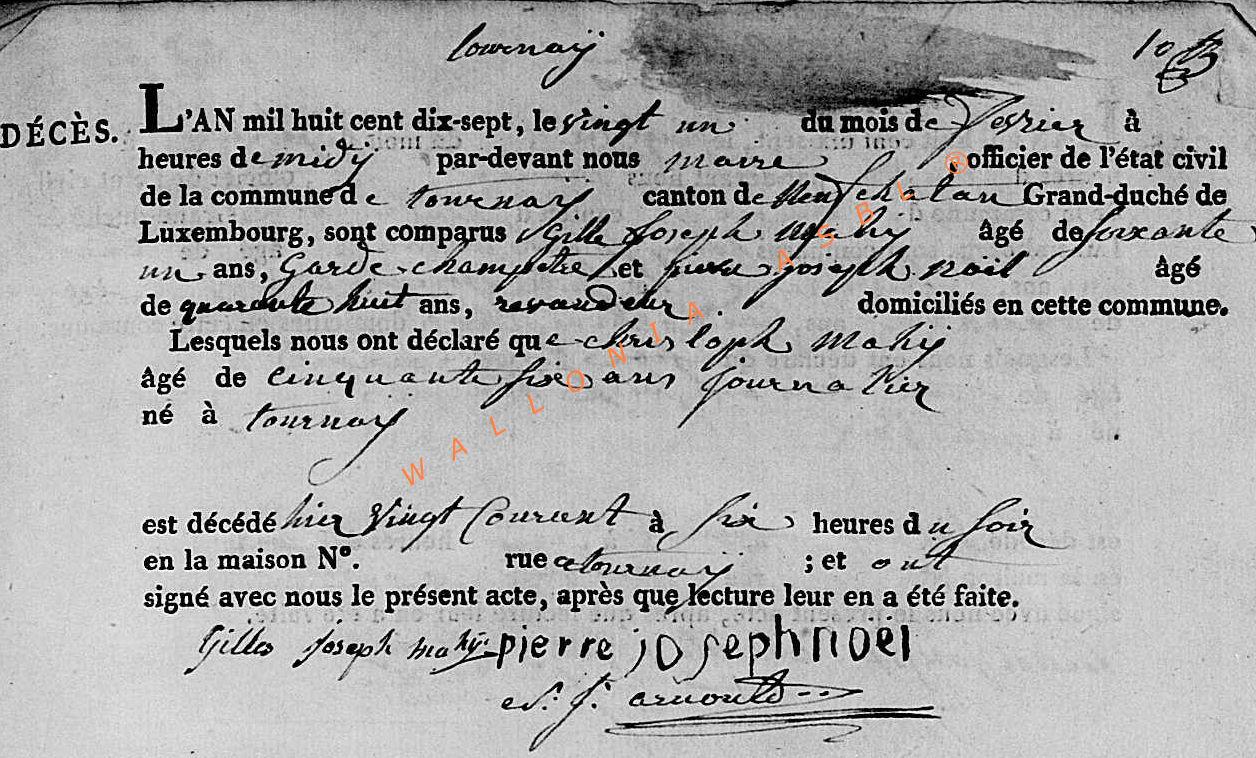 tournaÿ
10
DÉCÈS. L'AN mil huit cent dix-sept, le vingt un du mois de fevrier à
heures de midÿ par-devant nous maire officier de l'état civil
de la commune de tournaÿ canton de Neufchatau Grand-duché de
Luxembourg, sont comparus Gille Joseph Mahÿ âgé de soixante
un ans, Garde champetre et pierre joseph noël âgé
de quarante huit ans, revandeur. domiciliés en cette commune.
Lesquels nous ont déclaré que christoph mahÿ
âgé de cinquante six ans journalier
né à tournaÿ
est décédé hier vingt Courant à six heures du soir
en la maison N°. rue a tournaÿ ; et ont
signé avec nous le présent acte, après que lecture leur en a été faite.
Gilles Joseph mahÿ pierre joseph noël
J. arnould
WALLONIA ASBL ®